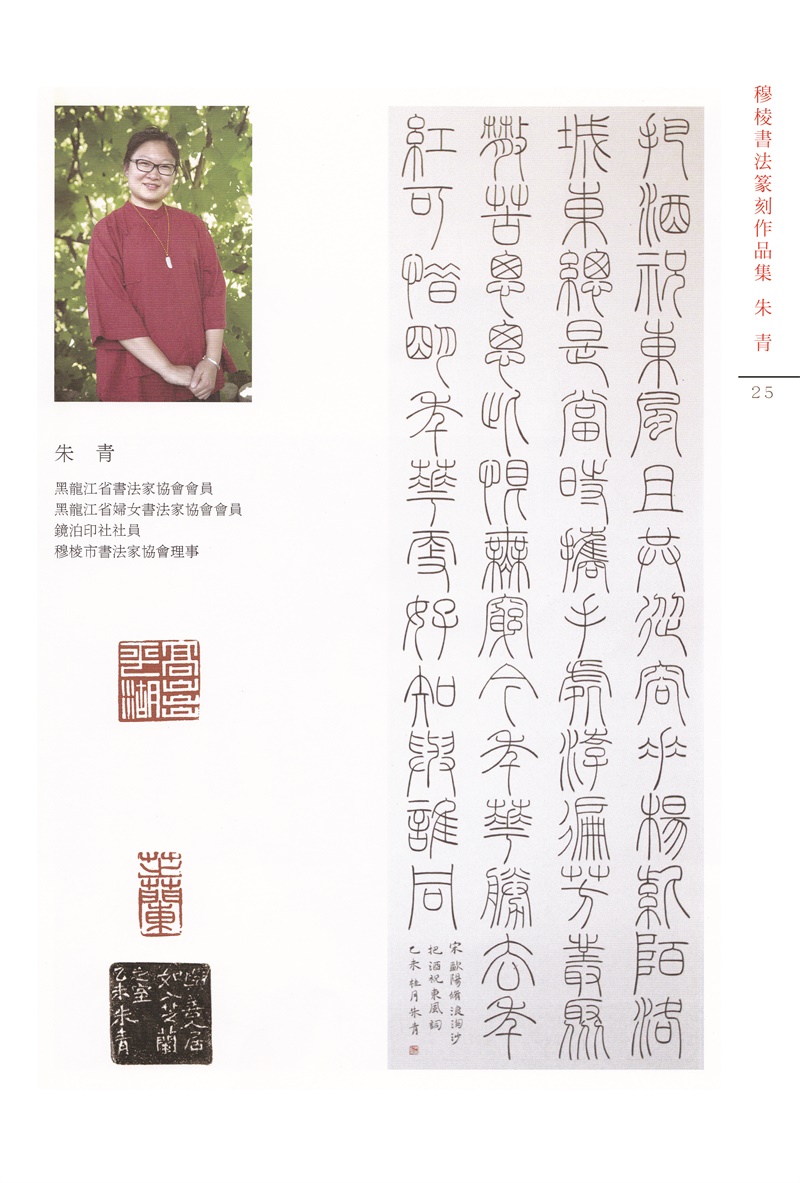 穆棱書法篆刻作品集 朱青
25
朱青
黑龍江省書法家協會會員
黑龍江省婦女書法家協會會員
鏡泊印社社員
穆棱市書法家協會理事
把酒祝東風且共從容垂楊紫陌洛
城東總是當時攜手處游徧芳叢聚
散苦悤悤此恨無窮今年華勝去年
紅可惜明年華更好知與誰同
宋歐陽脩浪淘沙
把酒祝東風詞
乙未桂月朱青
平湖
芝蘭
與善人居
如入芝蘭
之室乙未朱青